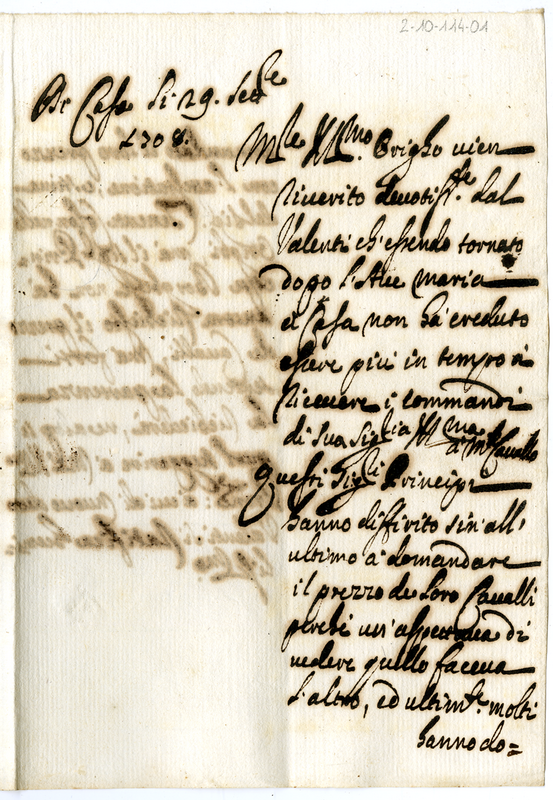 2-10-114-01
Di Casa li 29. Sett.re
1708.
M.le Ill.mo Origho vien
riverito devotiss.te dal
Valenti ch'essendo tornato
dopo l'Ave maria
a Casa non hà creduto
essere più in tempo di
ricevere i commandi
di sua Sig.lia Ill.ma
Questi Sig.li Principi
hanno differito sin'all'
ultimo a domandare
il prezzo de loro Cavalli
perche un'aspettava di
vedere quello faceva
l'altro, ed ultim.te molti
hanno do=